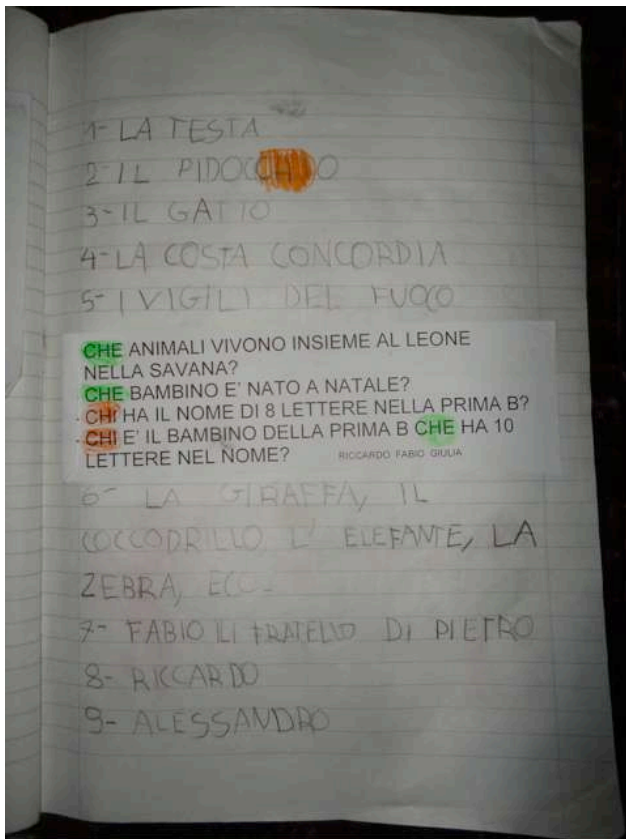 1- LA TESTA
2 IL PIDOCCHIO
3- IL GATTO
4- LA COSTA CONCORDIA
5- I VIGILI DEL FUOCO
CHE ANIMALI VIVONO INSIEME AL LEONE
NELLA SAVANA?
CHE BAMBINO E' NATO A NATALE?
- CHI HA IL NOME DI 8 LETTERE NELLA PRIMA B?
- CHI E' IL BAMBINO DELLA PRIMA B CHE HA 10
LETTERE NEL NOME? RICCARDO FABIO GIULIA
6- LA GIRAFFA, IL
COCCODRILLO L' ELEFANTE, LA
ZEBRA, ECC.
7- FABIO ILI FRATELLO DI PIETRO
8- RICCARDO
9- ALESSANDRO